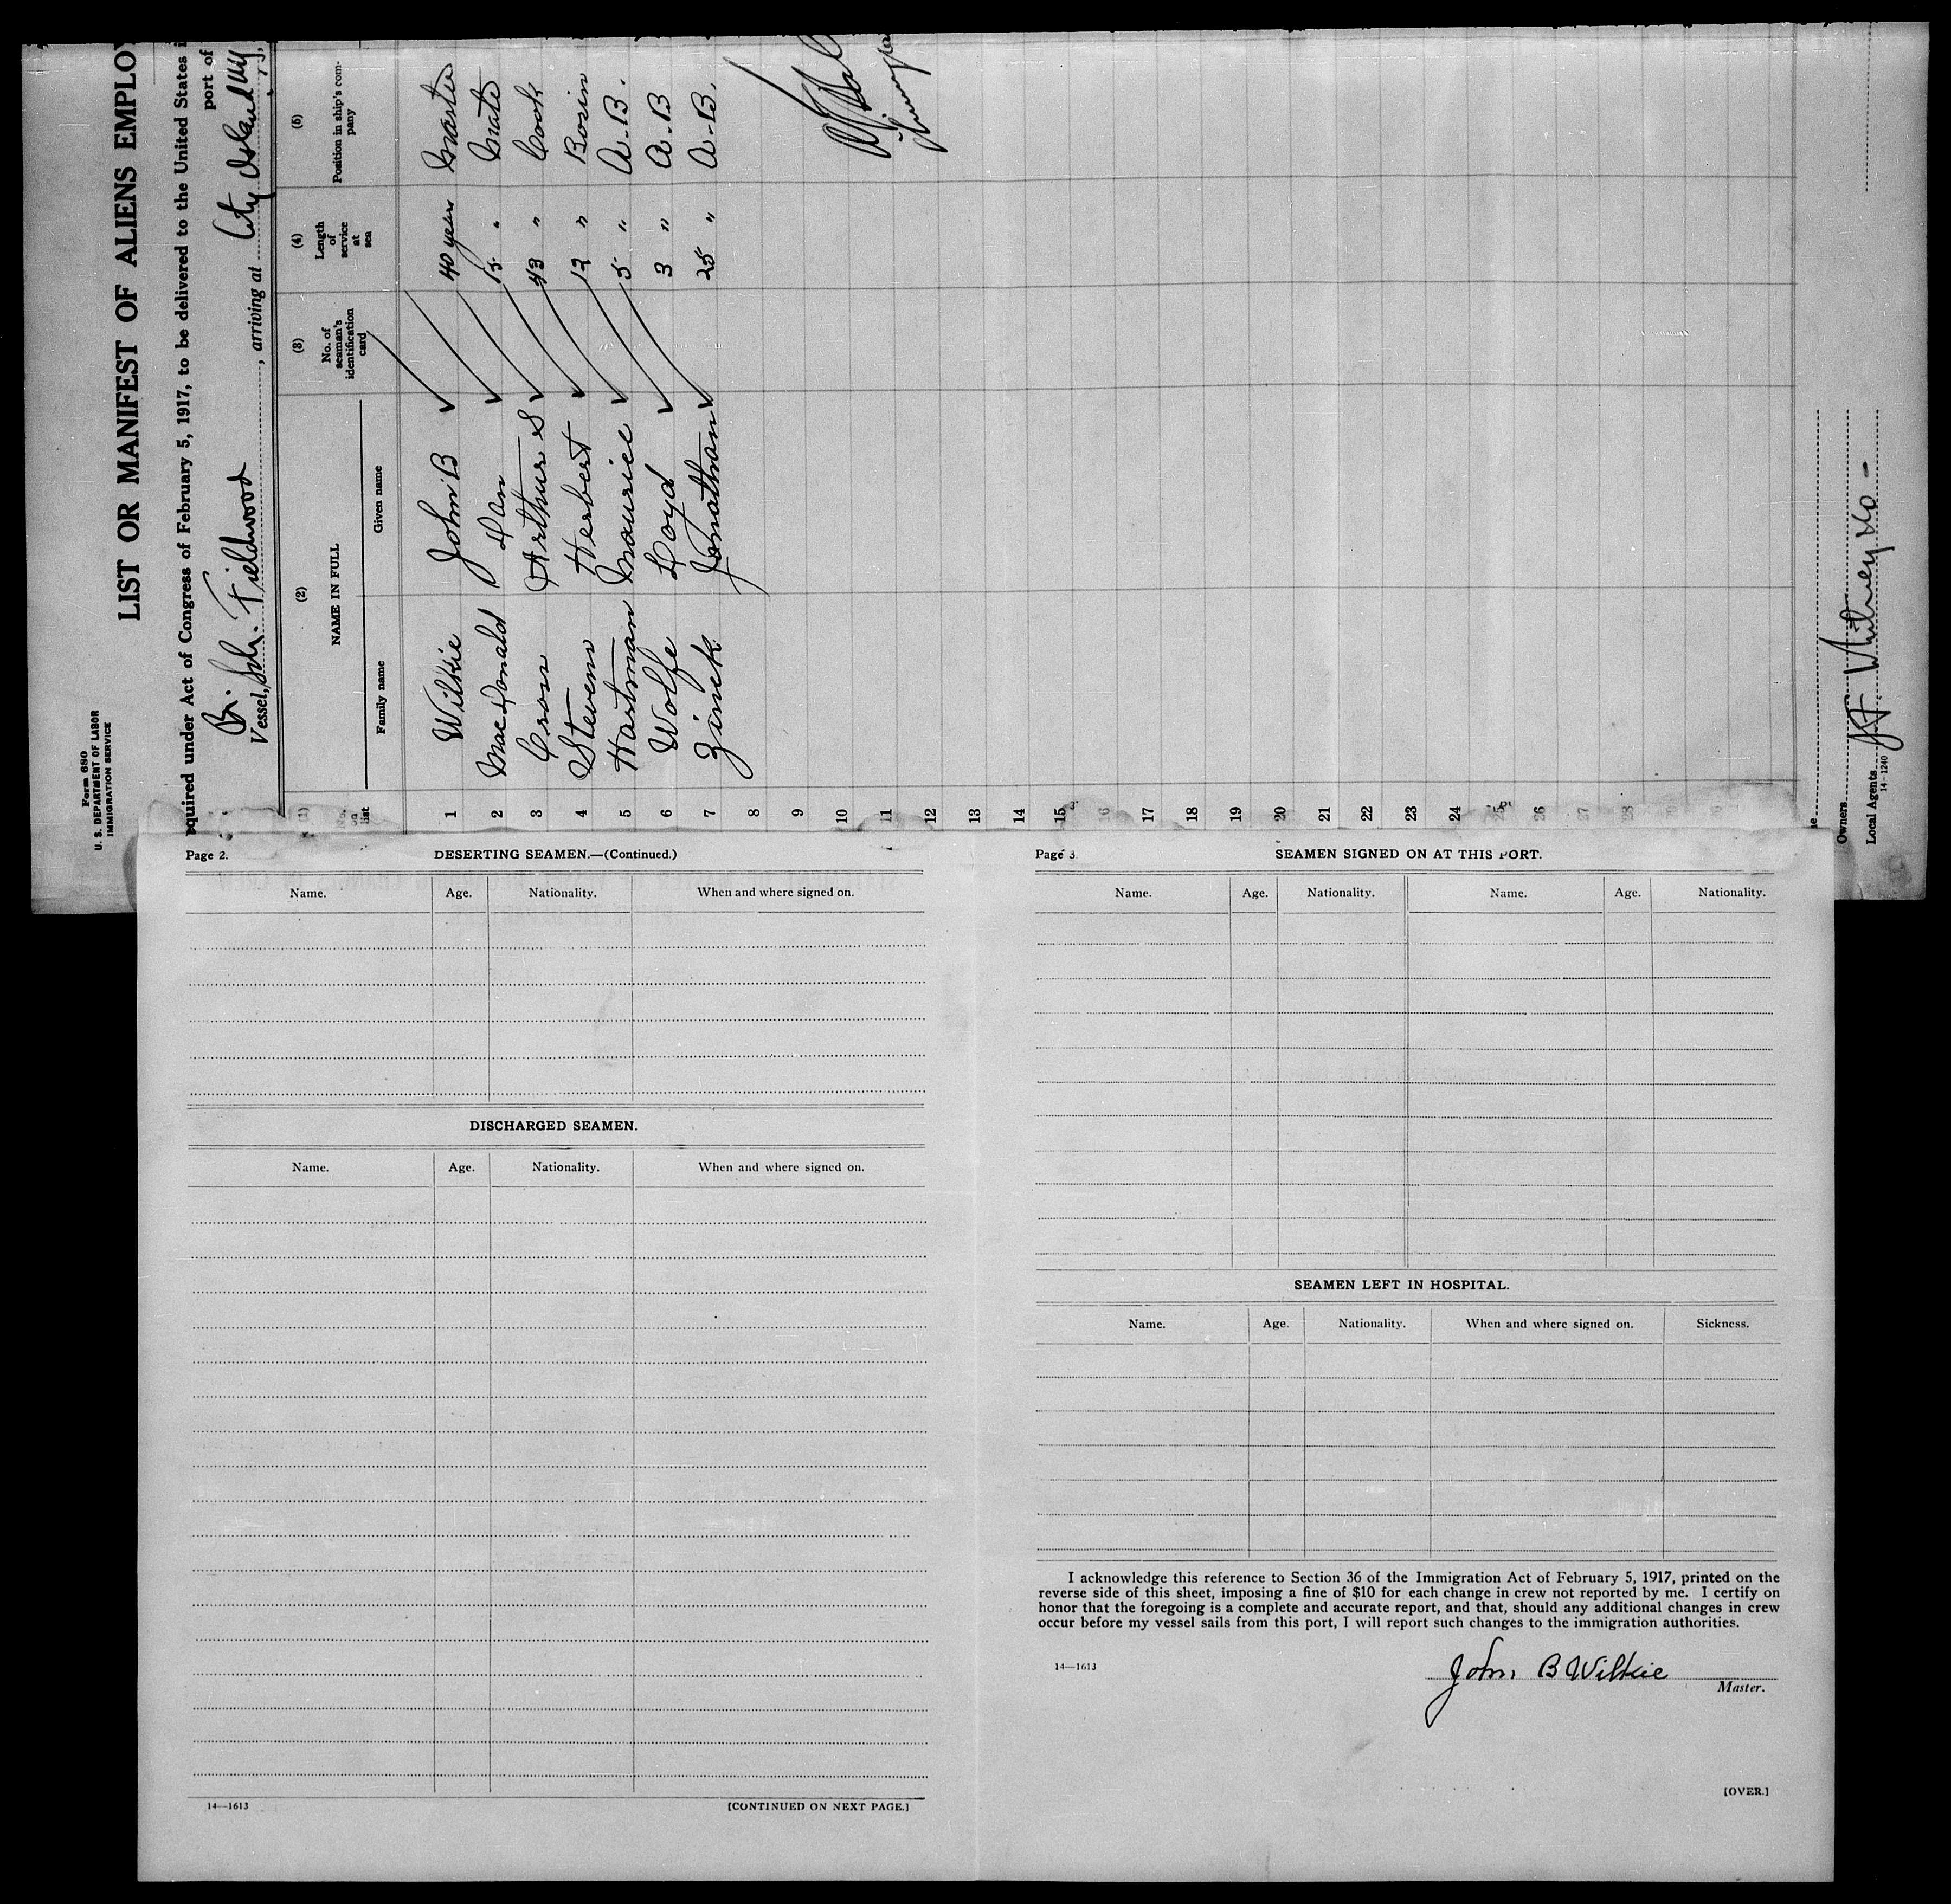 Form 680
U. S. DEPARTMENT OF LABOR
IMMIGRATION SERVICE
LIST OR MANIFEST OF ALIENS EMPLO
equired under Act of Congress of February 5, 1917, to be delivered to the United States i
port of
Br.
Vessel, Sch. Fieldwood, arriving at City Island NY
(2) (3) (4) (5)
NAME IN FULL
No. of seaman's identification card
Length of service at sea
Position in ship's company
list
Family name Given name
1 Wilkie John B 40 years Master
2 MacDonald Dan 15 " Mate
3 Cross Arthur S 43 " Cook
4 Stevens Herbert 12 " Bosin
5 Hartman Maurice 5 " A.B.
6 Wolfe Loyd 3 " A.B
7 Zinck Jonathan 25 " A.B.
8
9
10
11
12
13
14
15
16
17
18
19
20
21
22
23
24
25
26
27
28
Owners
Local Agents J F Whitney & Co -
14-1240
Page 2.
DESERTING SEAMEN.—(Continued.)
Name. Age. Nationality. When and where signed on.
DISCHARGED SEAMEN.
Name. Age. Nationality. When and where signed on.
14—1613
[CONTINUED ON NEXT PAGE.]
Page 3
SEAMEN SIGNED ON AT THIS PORT.
Name. Age. Nationality. Name. Age. Nationality.
SEAMEN LEFT IN HOSPITAL.
Name. Age. Nationality. When and where signed on. Sickness.
I acknowledge this reference to Section 36 of the Immigration Act of February 5, 1917, printed on the
reverse side of this sheet, imposing a fine of $10 for each change in crew not reported by me. I certify on
honor that the foregoing is a complete and accurate report, and that, should any additional changes in crew
occur before my vessel sails from this port, I will report such changes to the immigration authorities.
14—1613
John B Wilkie
Master.
[OVER.]